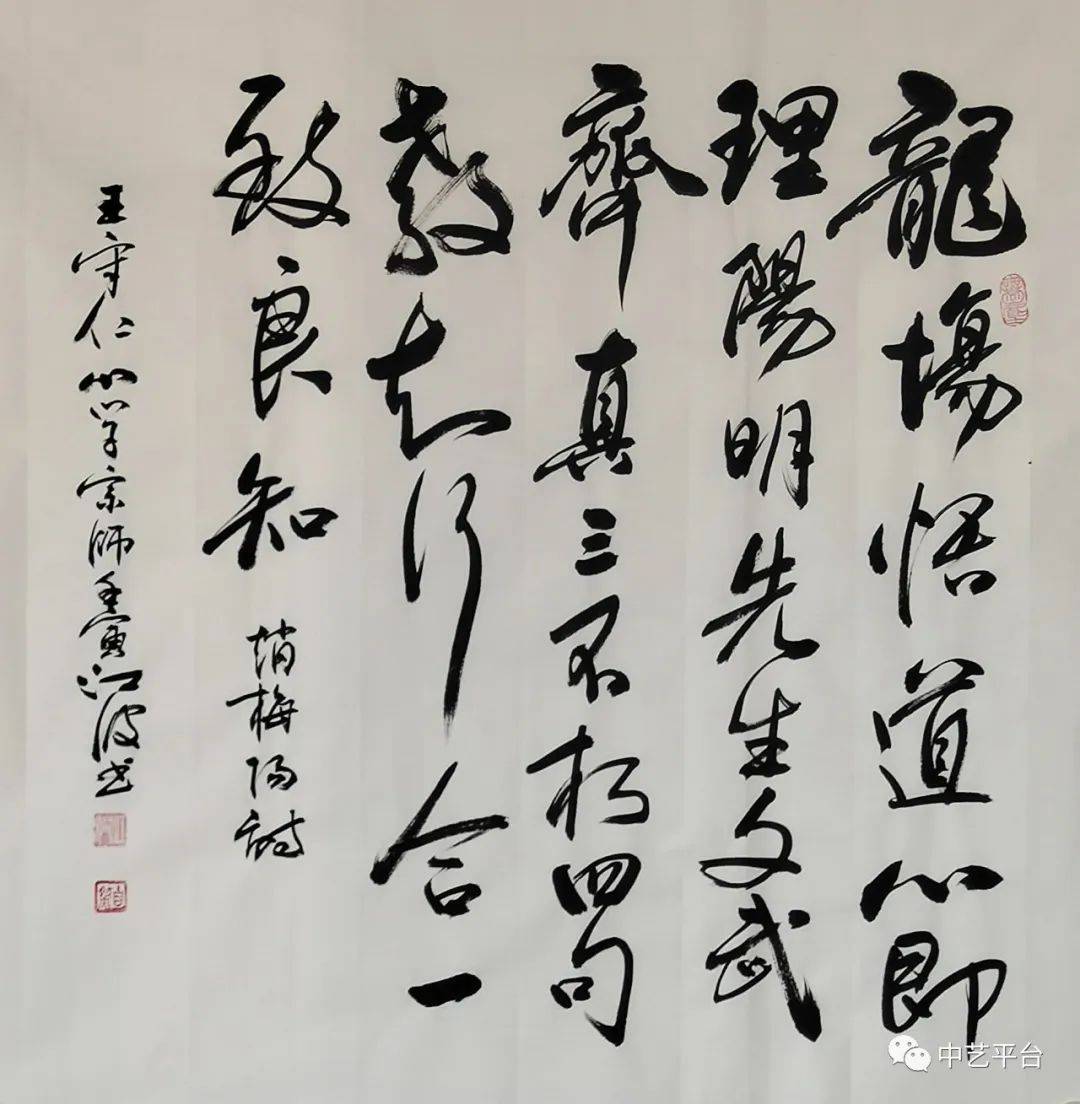 龍場悟道心即
理陽明先生文武
齊真三不朽四句
教知行合一
致良知
趙梅陽詩
王守仁心学宗師壬寅江波书
中艺平台